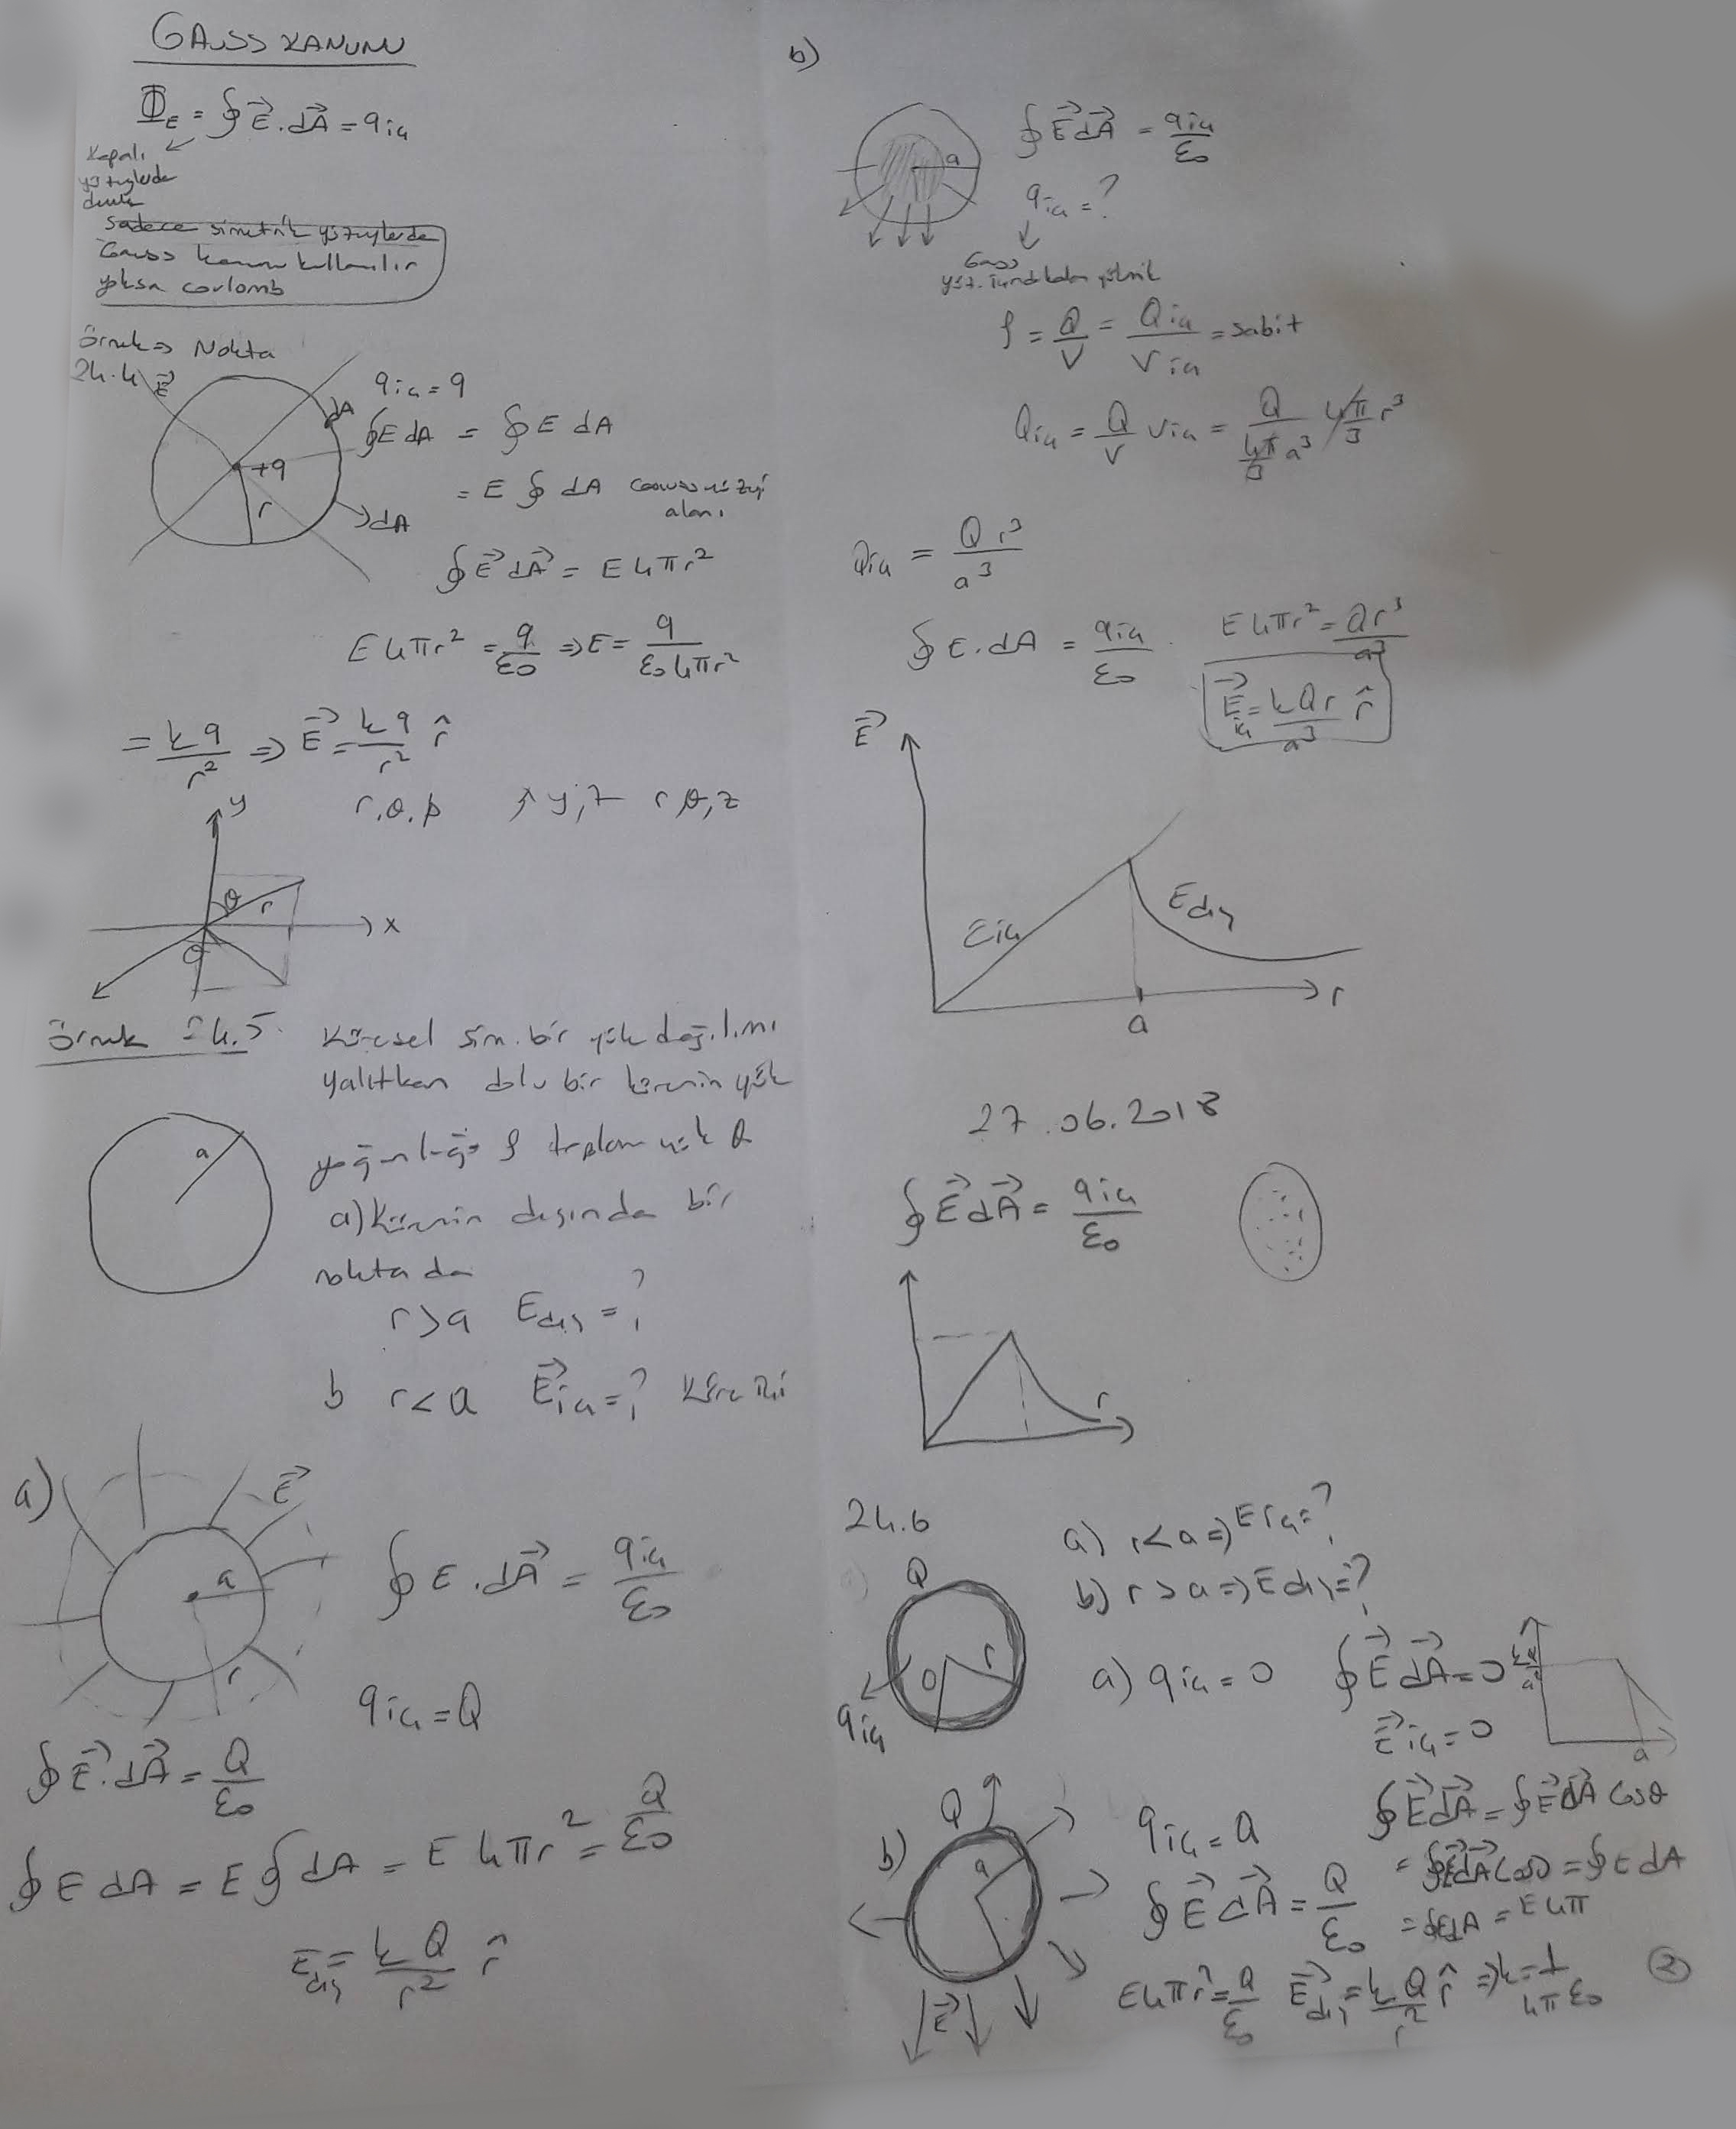 GAUSS KANUNU
Φ_E = ∮ E⃗ . dA⃗ = q iç
Kapalı
yüzeylerde
Sadece simetrik yüzeylerde
Gauss kanunu kullanılır
yoksa coulomb
Örnek => Nokta
24.4
E⃗
q iç = q
dA
+q
r
dA
∮E dA = ∮ E dA
= E ∮ dA Gauss yüzeyi
alanı
∮ E⃗ dA⃗ = E 4πr²
E 4πr² = q/ε0 => E = q/ε0 4πr²
= kq/r² => E⃗ = kq/r² r̂
y
r, θ, ϕ x, y, z r, θ, z
θ
r
x
Örnek 24.5 Küresel sim. bir yük dağılımı
yalıtkan dolu bir kürenin yük
yoğunluğu ρ toplam yük Q
a
a) Kürenin dışında bir
noktada
r > a E dış = ?
b r < a E⃗ iç = ? Küre içi
a)
E⃗
a
r
∮ E . dA⃗ = q iç/ε0
q iç = Q
∮ E⃗ . dA⃗ = Q/ε0
∮ E dA = E ∮ dA = E 4πr² = Q/ε0
E dış = kQ/r² r̂
b)
a
∮ E⃗ dA⃗ = q iç/ε0
q iç = ?
Gauss
yüz. içinde kalan yük
ρ = Q/V = Q iç/V iç = sabit
Q iç = Q/V V iç = Q/(4π/3 a³) 4π/3 r³
Q iç = Q r³/a³
∮ E . dA = q iç/ε0 E 4πr² = Qr³/a³
E⃗ iç = kQr/a³ r̂
E⃗
E iç
E dış
a
r
27.06.2018
∮ E⃗ dA⃗ = q iç/ε0
r
24.6
a) r < a => E iç = ?
b) r > a => E dış = ?
Q
r
O
q iç
a) q iç = 0 ∮ E⃗ dA⃗ = 0
E⃗ iç = 0
kQ/a²
a
b)
Q
a
E⃗
q iç = Q
∮ E⃗ dA⃗ = ∮ E⃗ dA⃗ cosθ
= ∮ E⃗ dA⃗ cos0 = ∮ E dA
∮ E⃗ dA⃗ = Q/ε0
= ∮EdA = E 4π
E 4πr² = Q/ε0 E⃗ dış = kQ/r² r̂ => k = 1/4πε0
2